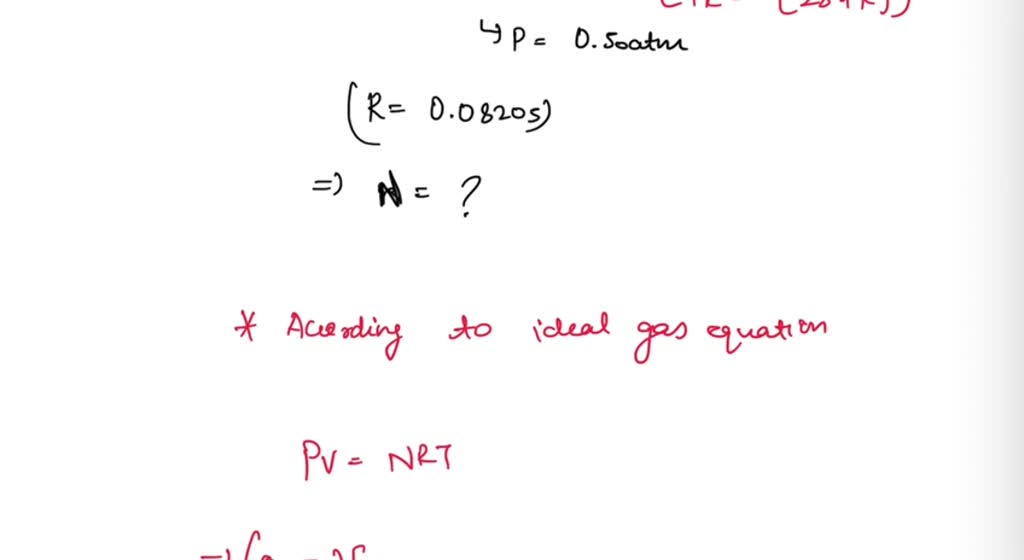 ↳ P = 0.50atm
(R = 0.08205)
=) N = ?
* According to ideal gas equation
PV = NRT